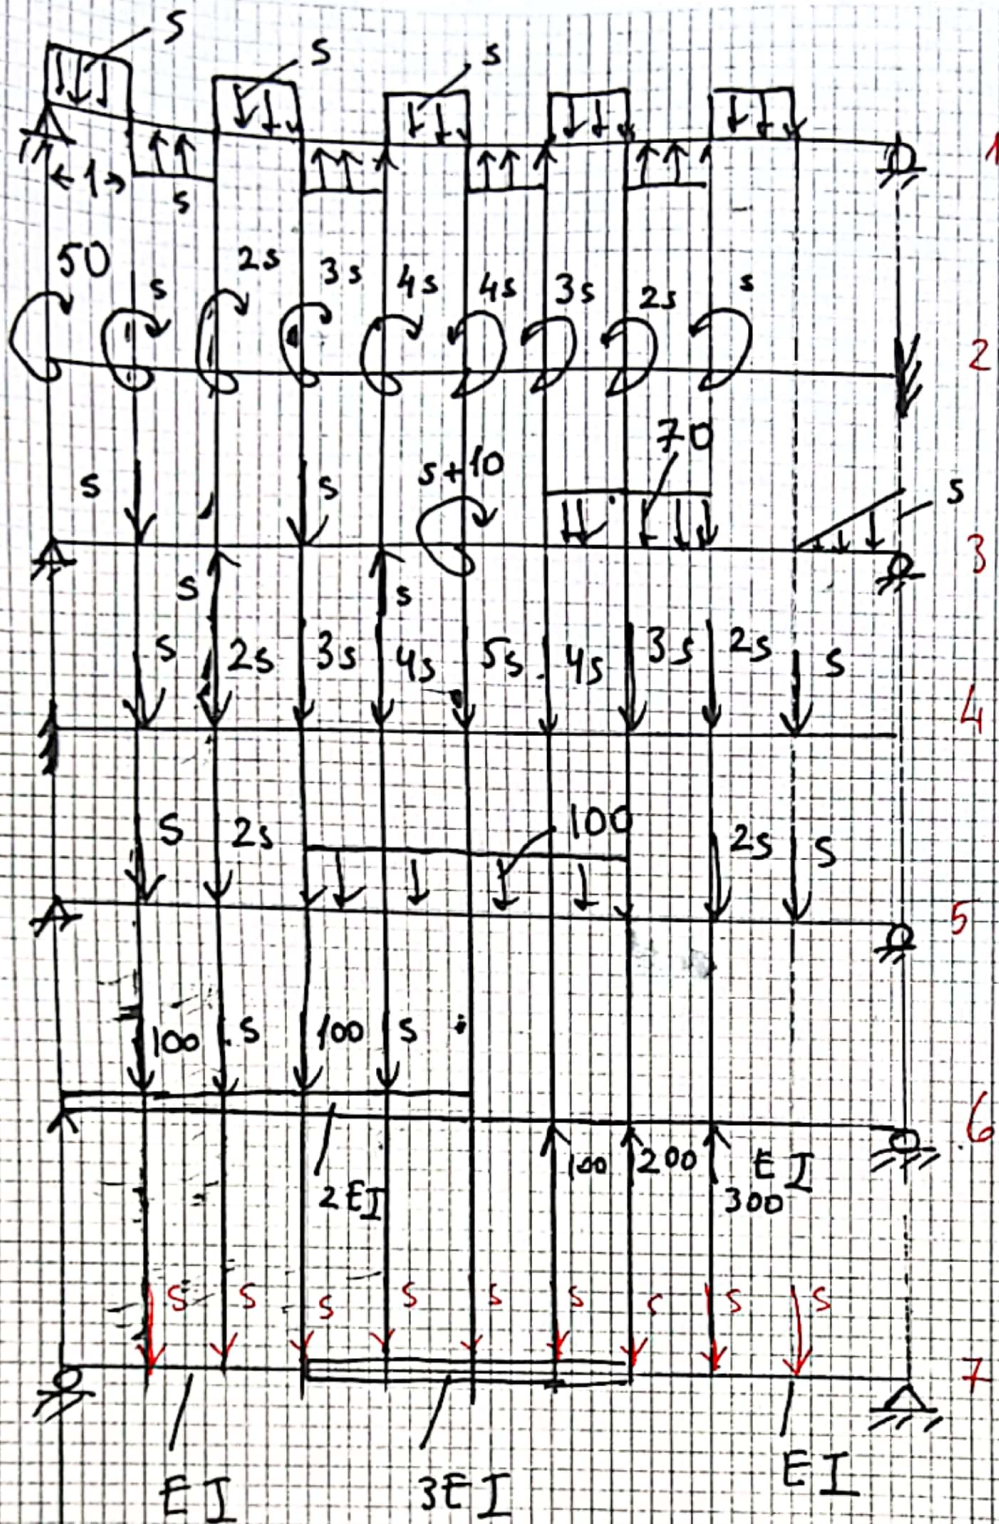 s
s
s
1
1
s
50
s
2s
3s
4s
4s
3s
2s
s
2
70
s
s
s+10
s
3
s
s
s
2s
3s
4s
5s
4s
3s
2s
s
4
s
2s
100
2s
s
5
100
s
100
s
6
100
200
EI
300
2EI
s
s
s
s
s
s
s
s
s
7
EI
3EI
EI